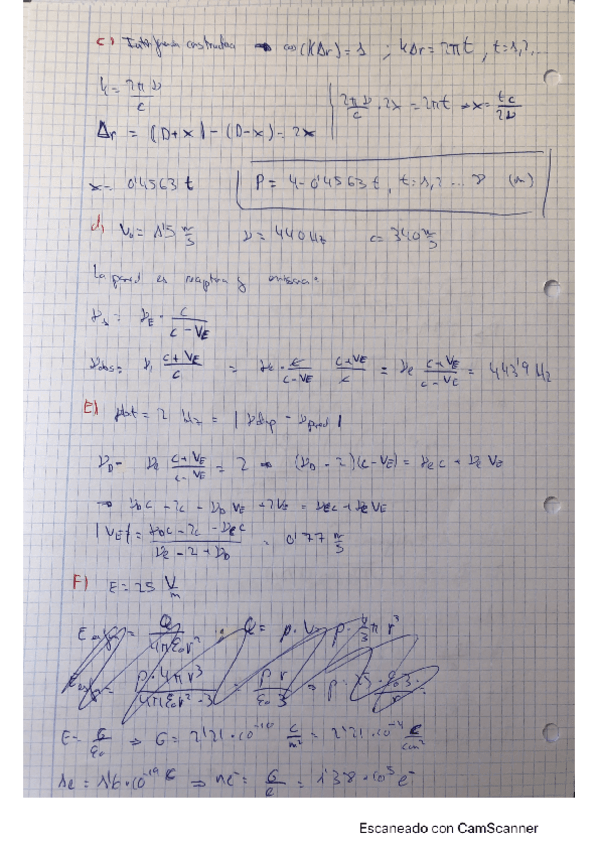 c) Interferencia constructiva → cos(kΔr) = 1 ; kΔr = 2πt, t = 1, 2, ...
k = 2πν/c
2πν/c · 2x = 2πt → x = tc/2ν
Δr = (D+x) - (D-x) = 2x
x = 0'4563 t
P = 4 - 0'4563 t, t = 1, 2 ... 8 (m)
d) V₀ = 1'5 m/s ν = 440 Hz c = 340 m/s
La pared es receptor y emisora:
ν₁ = νE · c/(c - VE)
νobs = ν₁ (c + VE)/c = νe · c/(c - VE) (c + VE)/c = νe (c + VE)/(c - VE) = 443'9 Hz
E) = 2 Hz = | - νpared |
νD - νe (c + VE)/(c - VE) = 2 → (νD - 2)(c - VE) = νe c + νe VE
→ νD c - 2c - νD VE + 2VE = νe c + νe VE
|VE| = (νD c - 2c - νe c)/(νe - 2 + νD) = 0'77 m/s
F) E = 25 V/m
= Q/(4πε₀r²) ; Q = ρ · V = ρ · 4/3 π r³
= ρ · 4πr³/(4πε₀r² · 3) = ρ r/(ε₀ 3) ⇒
E = σ/ε₀ ⇒ σ = 2'21 · 10⁻¹⁰ C/m² = 2'21 · 10⁻⁴ C/cm²
1e = 1'6 · 10⁻¹⁹ C ⇒ ne⁻ = σ/e = 1'38 · 10⁵ e⁻
Escaneado con CamScanner